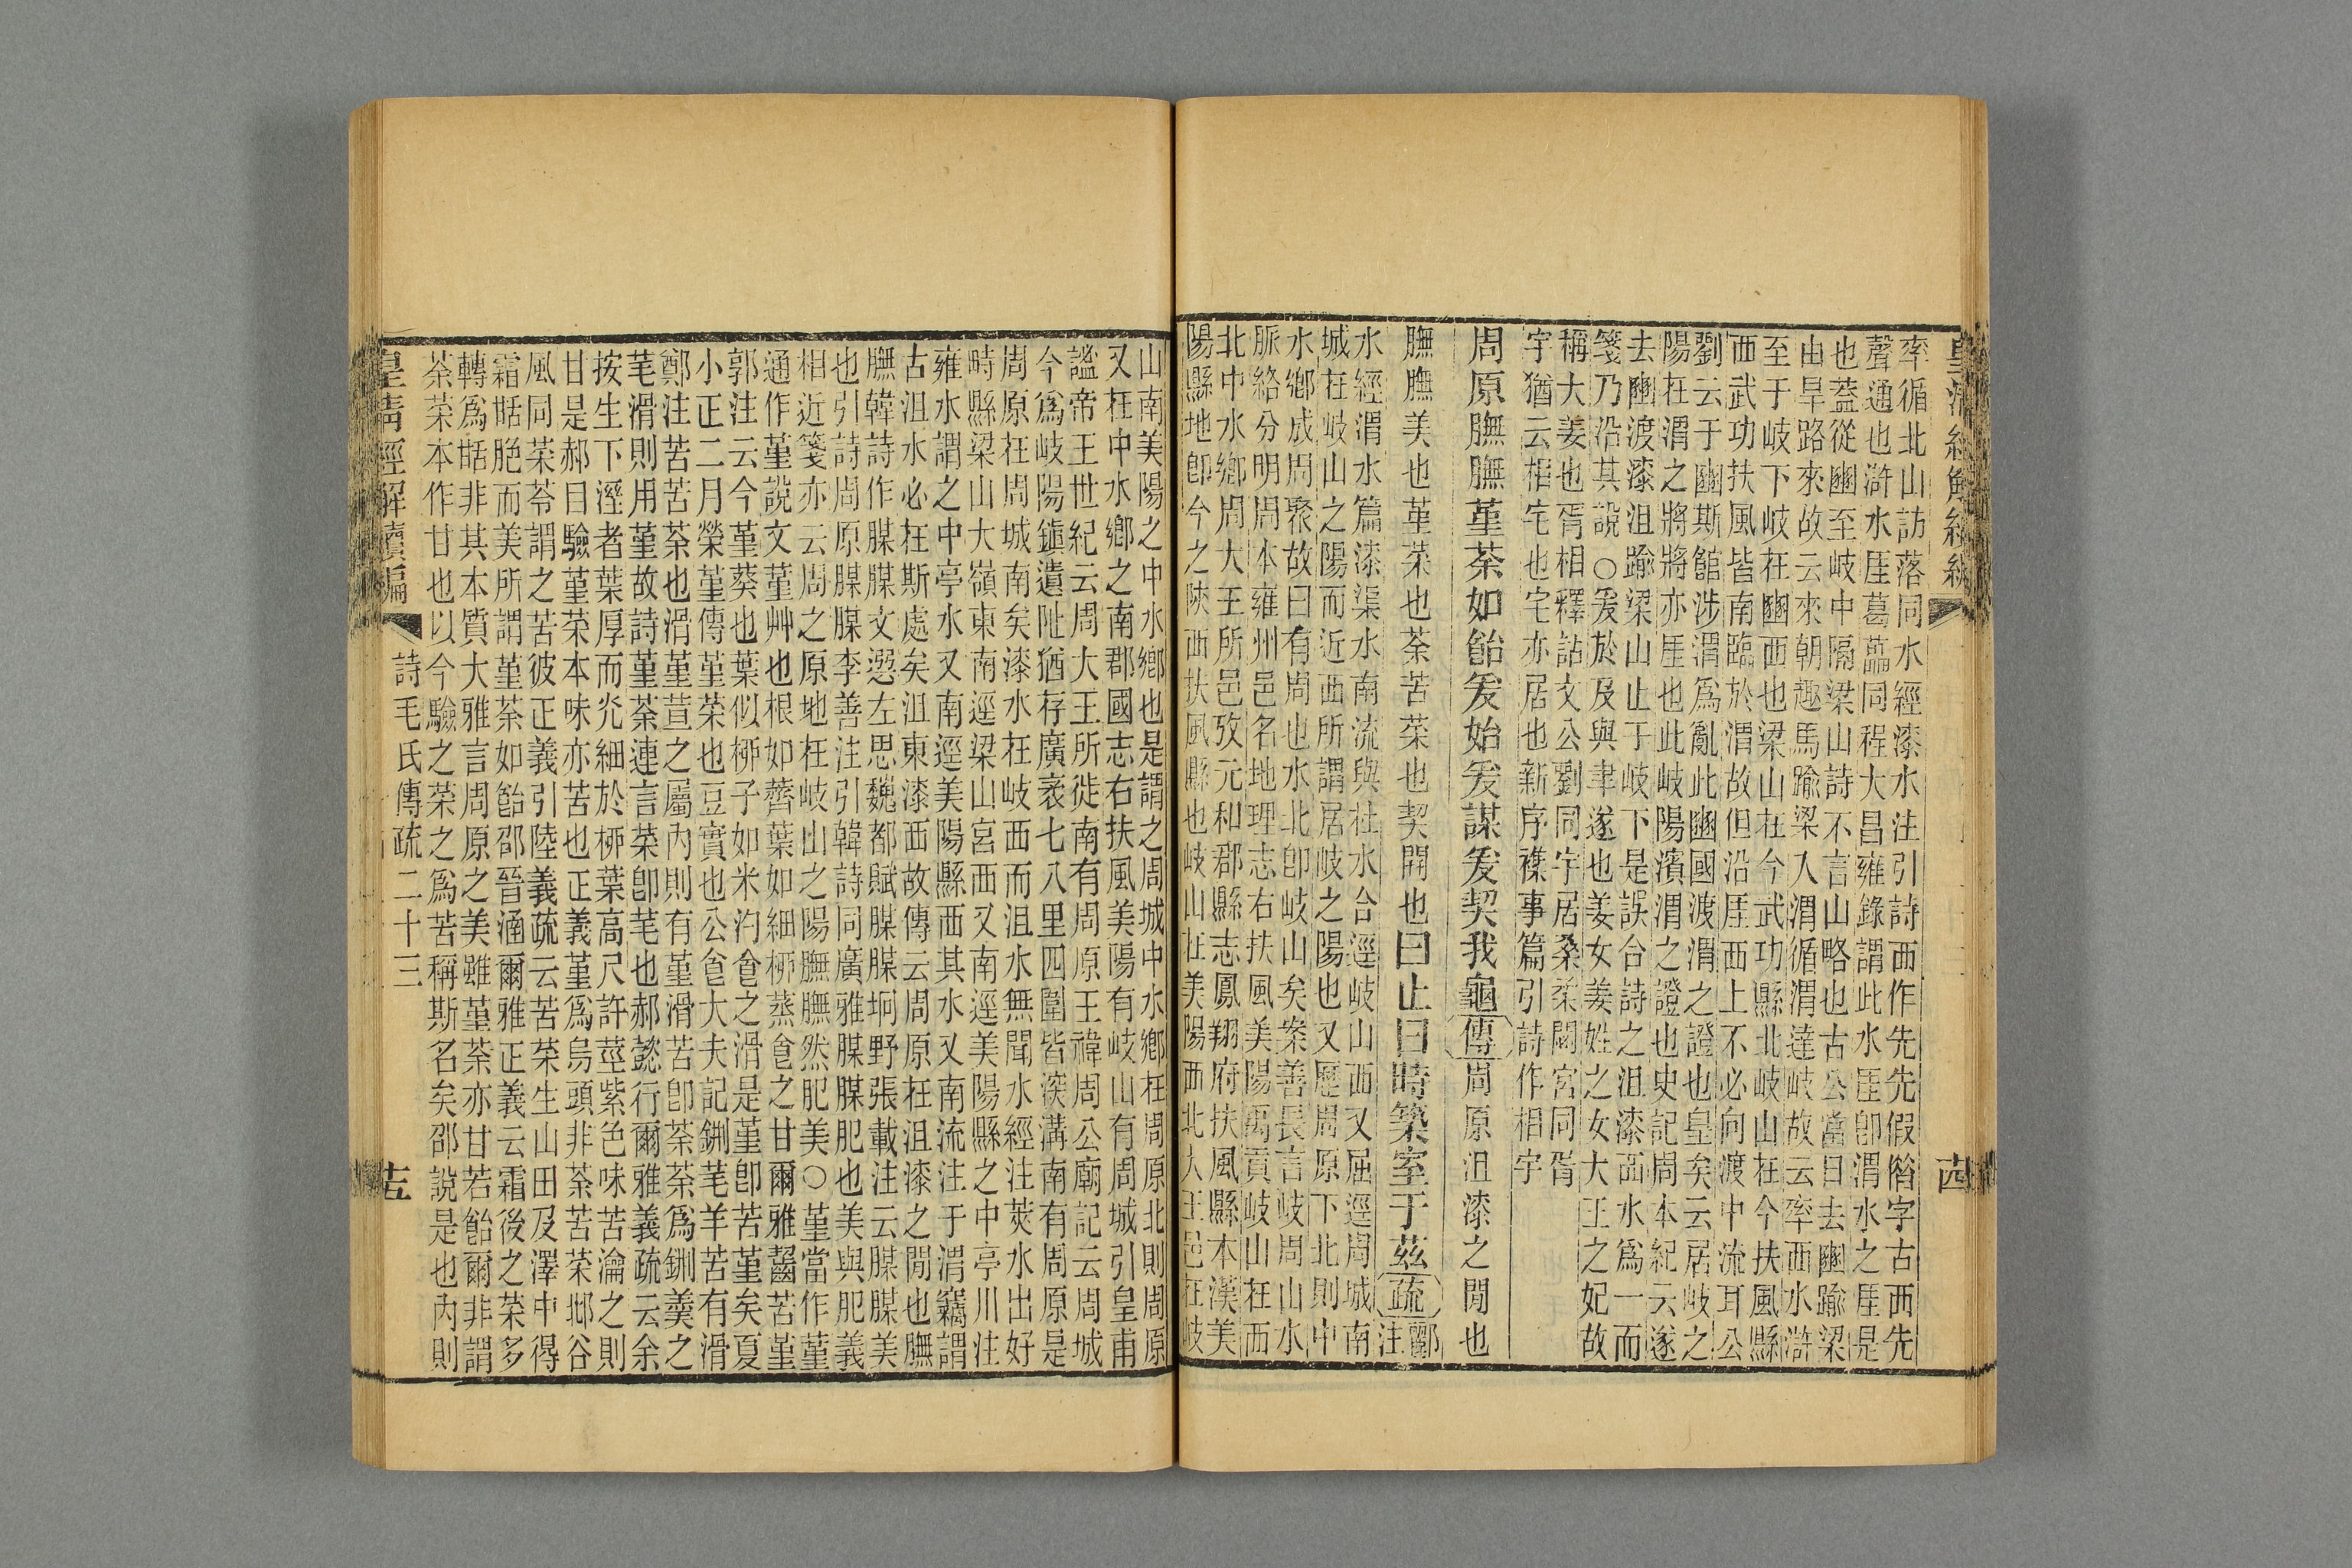 率循北山訪落同水經漆水注引詩西作先先假俗字古西先
聲通也滸水厓葛藟同程大昌雍錄謂此水厓卽渭水之厓是
也蓋從豳至岐中隔梁山詩不言山略也古公當日去豳踰梁
由旱路來故云來朝趣馬踰梁入渭循渭達岐故云率西水滸
至于岐下岐在豳西也梁山在今武功縣北岐山在今扶風縣
西武功扶風皆南臨於渭故但沿厓西上不必向渡中流耳公
劉云于豳斯館涉渭爲亂此豳國渡渭之證也皇矣云居岐之
陽在渭之將將亦厓也此岐陽濱渭之證也史記周本紀云遂
去豳渡漆沮踰梁山止于岐下是誤合詩之沮漆西水爲一而
箋乃沿其說○爰於及與聿遂也姜女姜姓之女大王之妃故
稱大姜也胥相釋詁文公劉同宇居桑柔閟宮同胥
宇猶云相宅也宅亦居也新序襍事篇引詩作相宇
周原膴膴堇荼如飴爰始爰謀爰契我龜傳周原沮漆之閒也
膴膴美也堇菜也荼苦菜也契開也曰止曰時築室于茲疏酈注
水經渭水篇漆渠水南流與杜水合逕岐山西又屈逕周城南
城在岐山之陽而近西所謂居岐之陽也又歷周原下北則中
水鄉成周聚故曰有周也水北卽岐山矣案善長言岐周山水
脈絡分明周本雍州邑名地理志右扶風美陽禹貢岐山在西
北中水鄉周大王所邑攷元和郡縣志鳳翔府扶風縣本漢美
陽縣地卽今之陝西扶風縣也岐山在美陽西北大王邑在岐
山南美陽之中水鄉也是謂之周城中水鄉在周原北則周原
又在中水鄉之南郡國志右扶風美陽有岐山有周城引皇甫
謐帝王世紀云周大王所徙南有周原王禕周公廟記云周城
今爲岐陽鎭遺阯猶存廣袤七八里四圍皆深溝南有周原是
周原在周城南矣漆水在岐西而沮水無聞水經注莢水出好
畤縣梁山大嶺東南逕梁山宮西又南逕美陽縣之中亭川注
雍水謂之中亭水又南逕美陽縣西其水又南流注于渭竊謂
古沮水必在斯處矣沮東漆西故傳云周原在沮漆之閒也膴
膴韓詩作腜腜文選左思魏都賦腜腜坰野張載注云腜腜美
也引詩周原腜腜李善注引韓詩同廣雅腜腜肥也美與肥義
相近箋亦云周之原地在岐山之陽膴膴然肥美○堇當作蓳
通作堇說文蓳艸也根如薺葉如細桺蒸食之甘爾雅齧苦堇
郭注云今堇葵也葉似桺子如米汋食之滑是堇卽苦堇矣夏
小正二月榮堇傳堇菜也豆實也公食大夫記鉶芼羊苦有滑
鄭注苦苦荼也滑堇荁之屬內則有堇滑苦卽荼荼爲鉶羹之
芼滑則用堇故詩堇荼連言菜卽芼也郝懿行爾雅義疏云余
按生下溼者葉厚而光細於桺葉高尺許莖紫色味苦瀹之則
甘是郝目驗堇菜本味亦苦也正義堇爲烏頭非荼苦菜邶谷
風同菜苓謂之苦彼正義引陸義疏云苦菜生山田及澤中得
霜甛脃而美所謂堇荼如飴邵晉涵爾雅正義云霜後之菜多
轉爲甛非其本質大雅言周原之美雖堇荼亦甘若飴爾非謂
荼菜本作甘也以今驗之菜之爲苦稱斯名矣邵說是也內則
皇淸經解續編
詩毛氏傳疏二十三